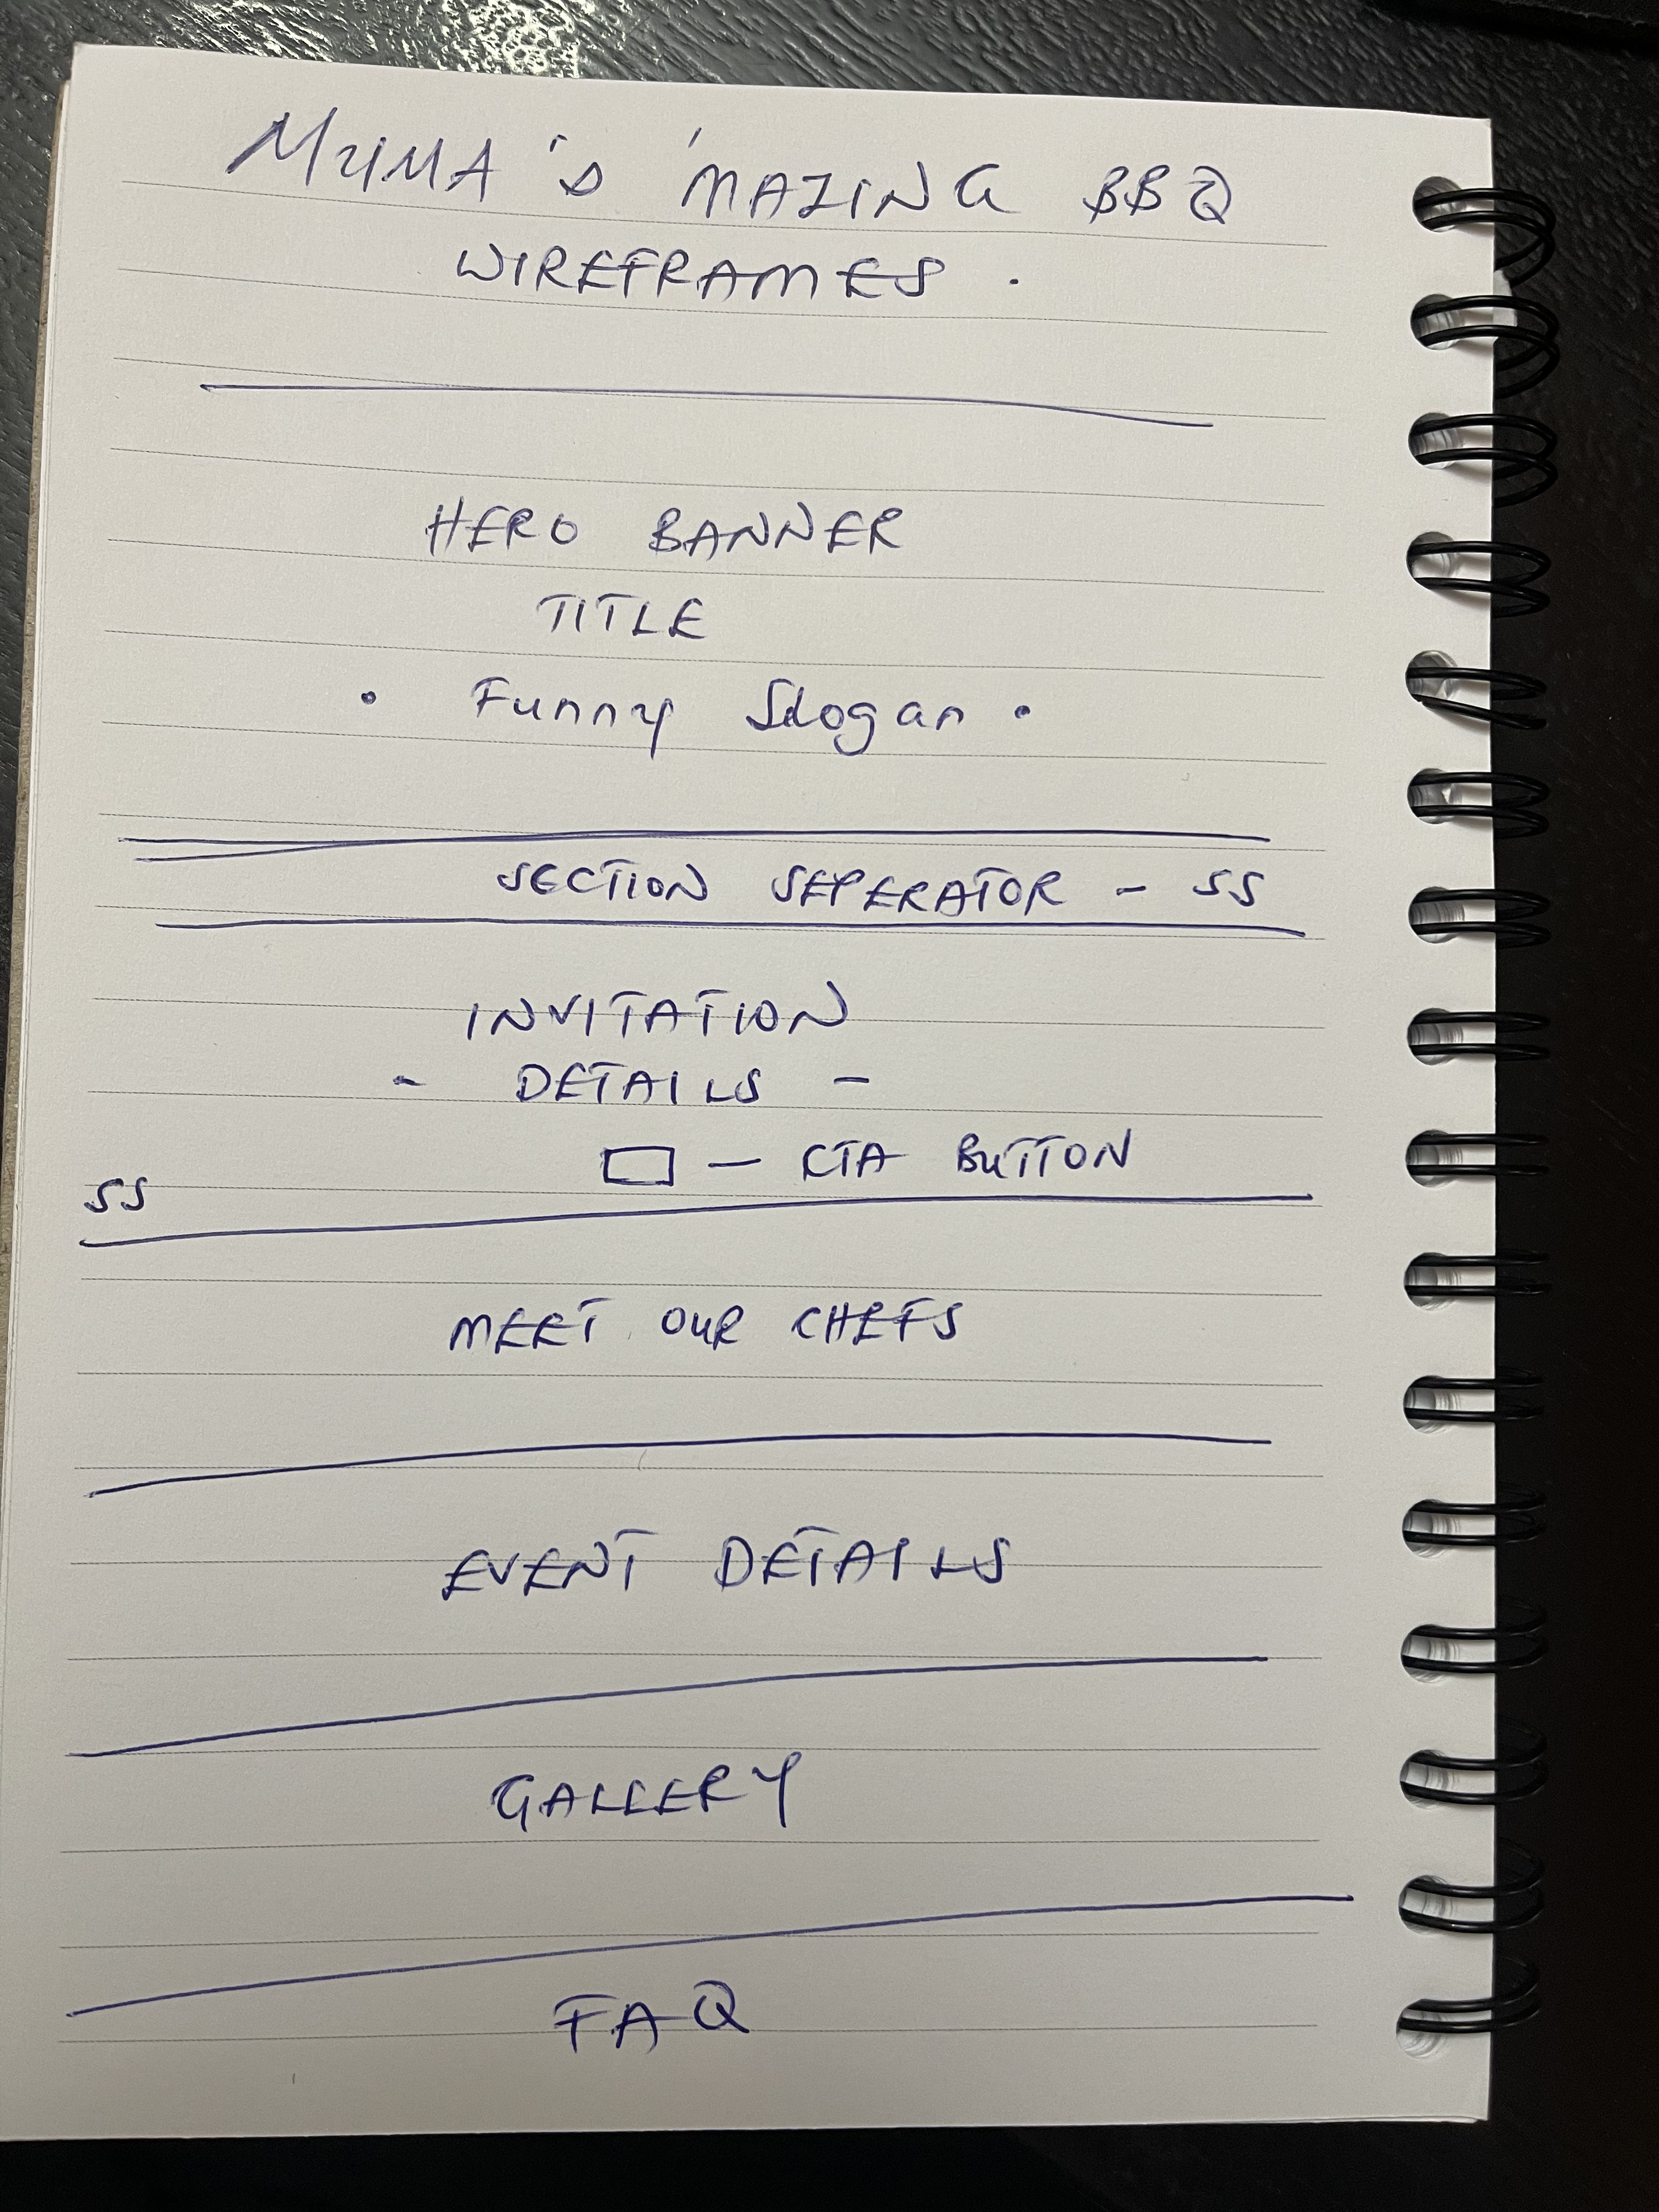 MUMA'S 'MAZING BBQ
WIREFRAMES.
HERO BANNER
TITLE
• Funny Slogan •
SECTION SEPERATOR - SS
INVITATION
- DETAILS -
— CTA BUTTON
SS
MEET OUR CHEFS
EVENT DETAILS
GALLERY
FAQ